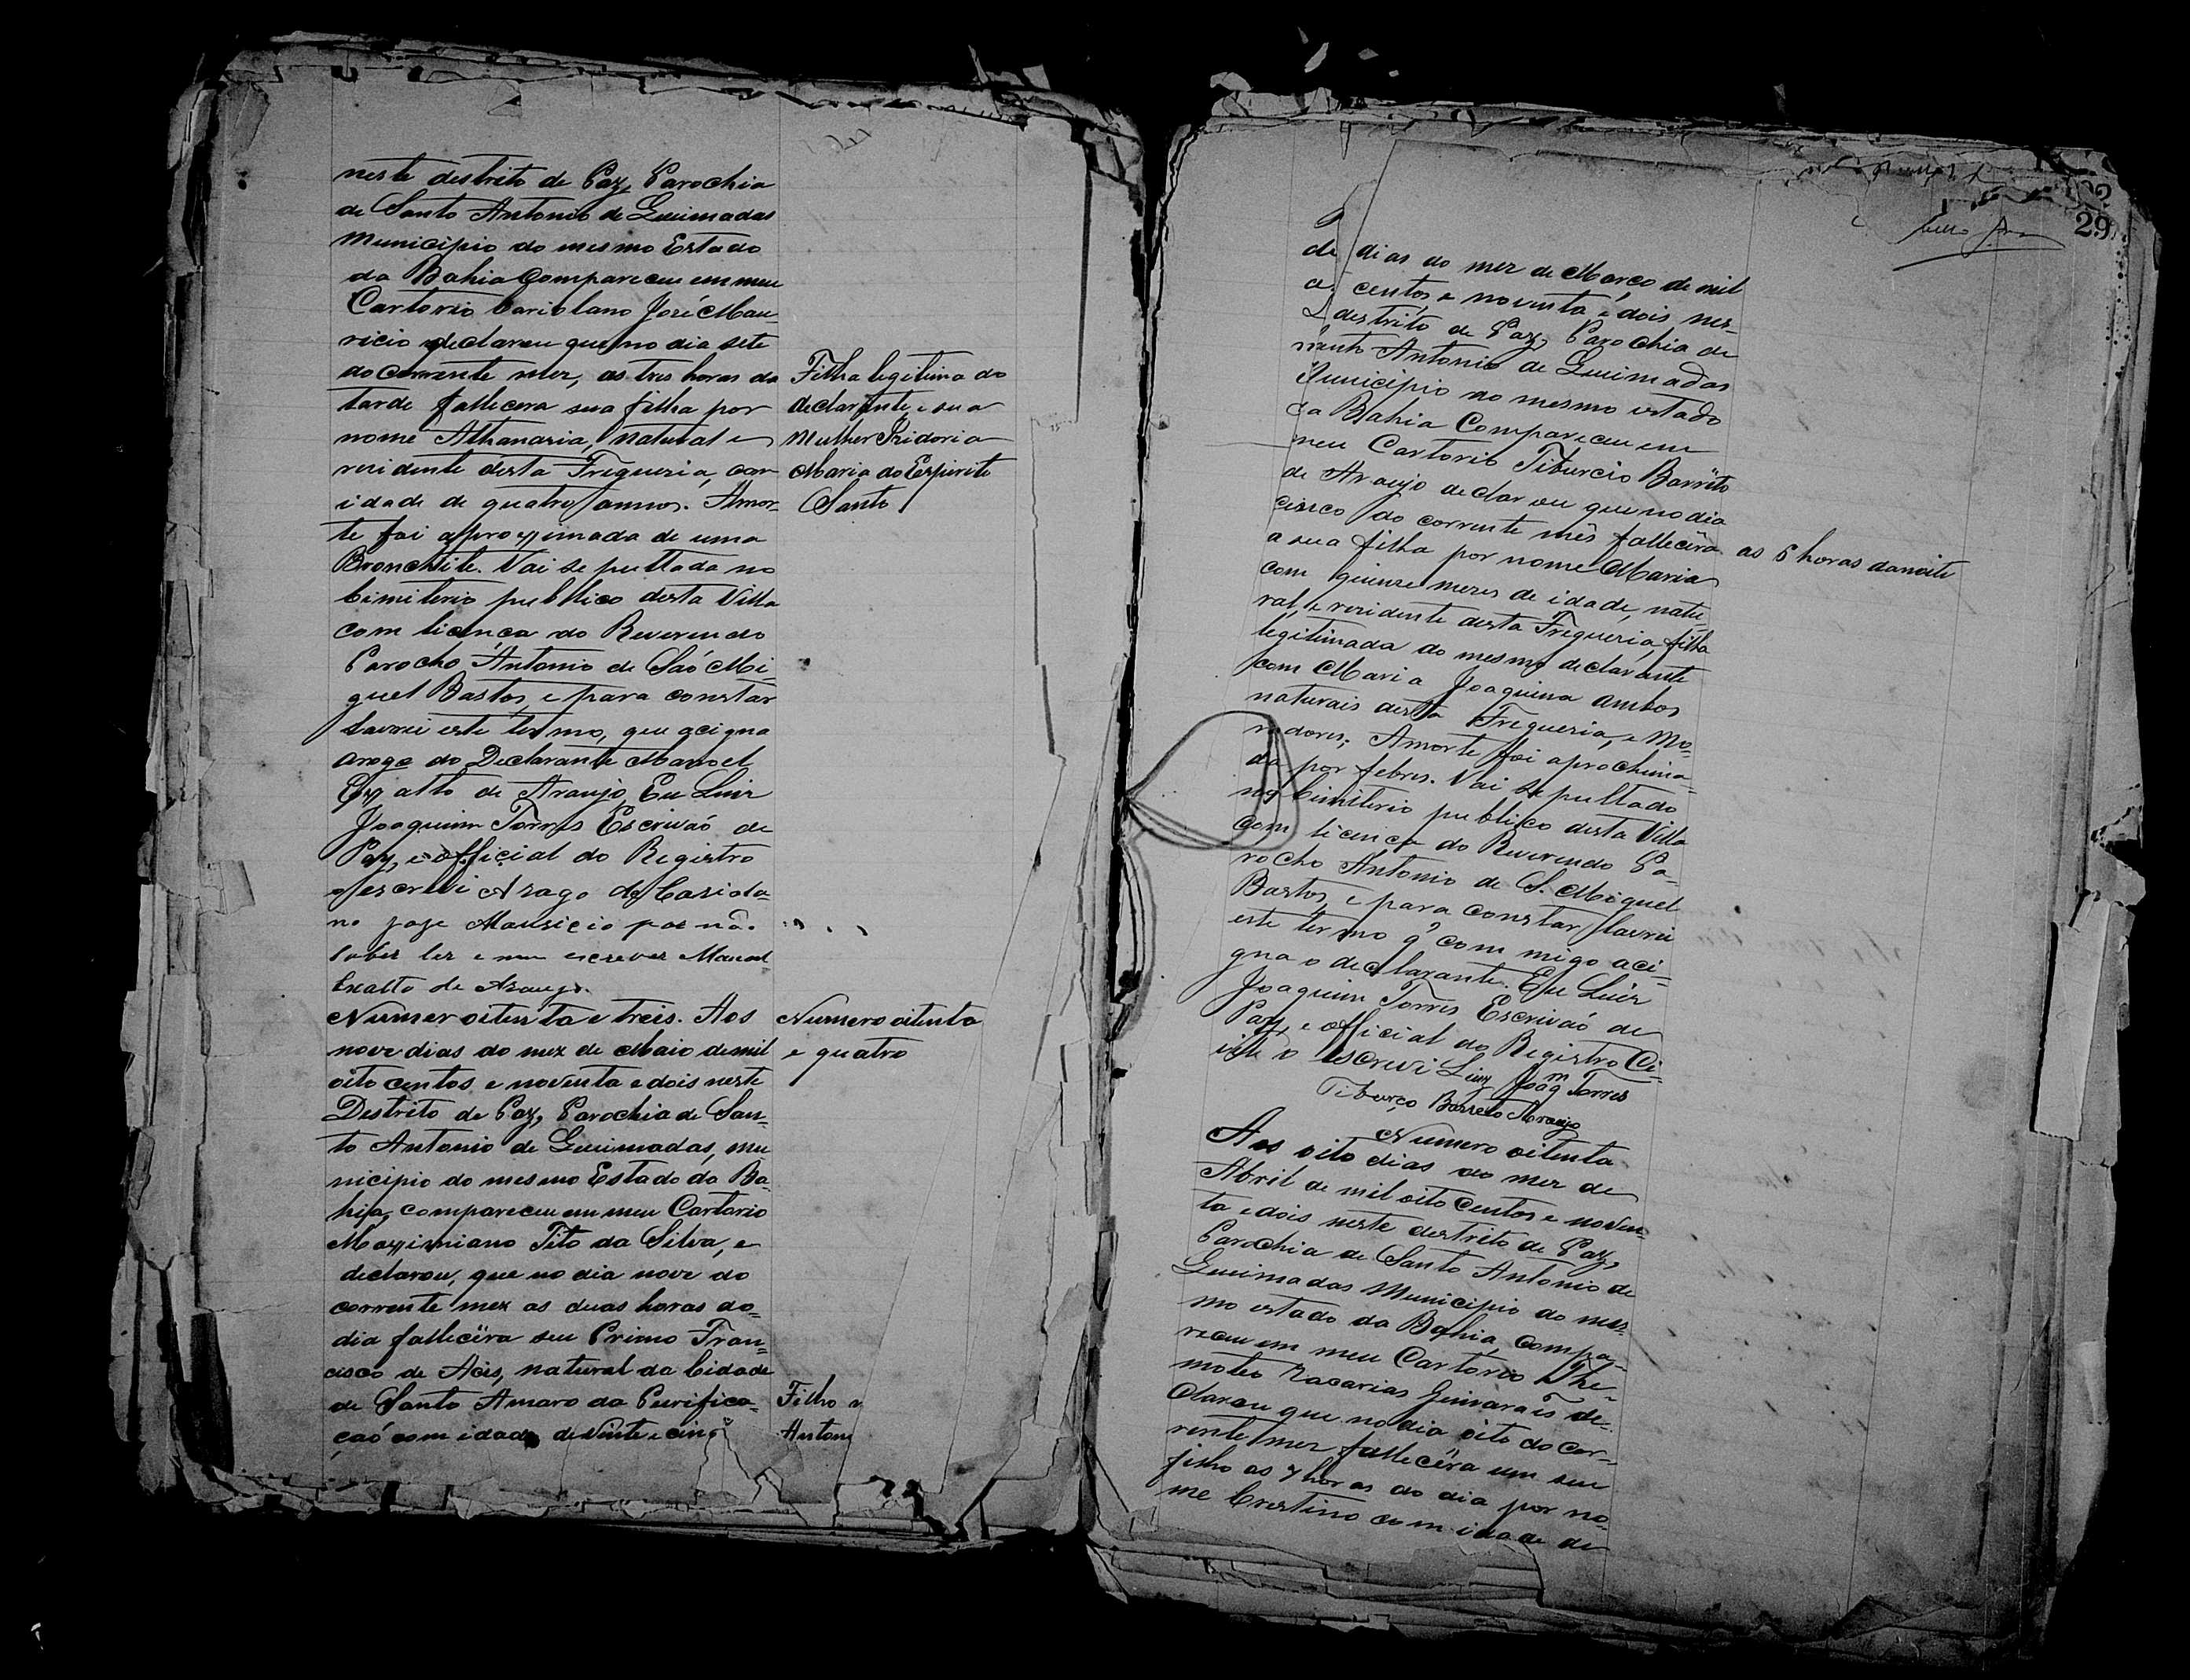 neste destrito de Paz, Parochia
de Santo Antonio de Queimadas
Municipio do mesmo Estado
da Bahia Compareceu em meu
Cartorio Cariolano José Mau-
ricio declarou que no dia sete
do corrente mez, as tres horas da
tarde fallecera sua filha por
nome Athanasia, natural e
residente desta Freguesia, com
idade de quatro annos. Amor-
te foi aproximada de uma
Bronchite. Vai sepultada no
Cimiterio publico desta Villa
com licença do Reverendo
Parocho Antonio de Saó Mi-
guel Bastos, e para constar
lavrei este termo, que acigna
arogo do Declarante Manoel
Exalto de Araujo, Eu Luiz
Joaquim Torres Escrivaó de
Paz, e official do Registro
o escrevi Arogo de Cariola-
no Joze Mauricio por não
saber ler e nem escrever Manoel
Exalto de Araujo.
Filha legitima do
declarante, e sua
Mulher Izidoria
Maria do Espirito
Santo
Numer oitenta e treis. Aos
nove dias do mez de Maio de mil
oito centos e noventa e dois neste
Destrito de Paz, Parochia de San-
to Antonio de Queimadas, mu
nicipio do mesmo Estado da Ba-
hia, compareceu em meu Cartorio
Maximiano Tito da Silva, e
declarou, que no dia nove do
corrente mez as duas horas do
dia fallecêra seu Primo Fran-
cisco de Acis, natural da Cidade
de Santo Amaro da Purifica-
çaó com idade de vinte e cin
Numero oitenta
e quatro
Filho
Anton
29
dias do mez de Março de mil
centos e noventa e dois nes-
destrito de Paz, Parochia de
Antonio de Queimadas
Municipio do mesmo estado
da Bahia Compareceu em
meu Cartorio Tiburcio Barrêto
de Araujo declarou que no dia
cinco do corrente mês fallecêra
as 6 horas da noite
a sua filha por nome Maria
com quinze mezes de idade, natu-
ral, e residente desta Freguesia, filha
legitimada do mesmo declarante
com Maria Joaquina ambos
naturais desta Freguesia, e Mo-
radores; Amorte foi aprochima-
da por febres. Vai sepultado
no Cimiterio publico desta Villa
com licença do Reverendo Pa-
rocho Antonio de S. Miguel
Bastos, e para constar lavrei
este termo q̃ com migo aci-
gna o declarante. Eu Luiz
Joaquim Torres Escrivaó de
Paz, e official do Registro Ci-
vil o escrevi Luiz Joaqᵐ Torres
Tiburço Barreto Araujo
Numero oitenta
Aos oito dias do mez de
Abril de mil oito Centos e noven-
ta e dois neste destrito de Paz,
Parochia de Santo Antonio de
Queimadas Municipio do mes-
mo estado da Bahia, compa-
receu em meu Cartorio The-
moteo Zacarias Guimarais de-
clarou que no dia oito do cor-
rente mez fallecêra um seu
filho as 7 horas do dia por no-
me Crestino com idade de